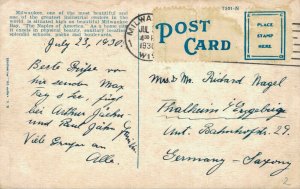 Milwaukee, one of the finest cities and one of
the greatest industrial centers in the
world is situated high on beautiful Milwaukee
Bay, "The Naples of America." As a home site
it excels in physical beauty, sanitary location,
splendid schools, parks and boulevards.
7391-N
MILWA
JUL
4 PM
1930
WIS
POST
CARD
PLACE
STAMP
HERE
July 23, 1930.
Beste Grüße von
Max
bei Arthur Jaehn
und Paul Jahn
Viele Grüße an
Alle.
Mrs & Mr. Richard Nagel
Thalheim i/Erzgebirg
Unt. Bahnhofstr. 29.
Germany - Saxony